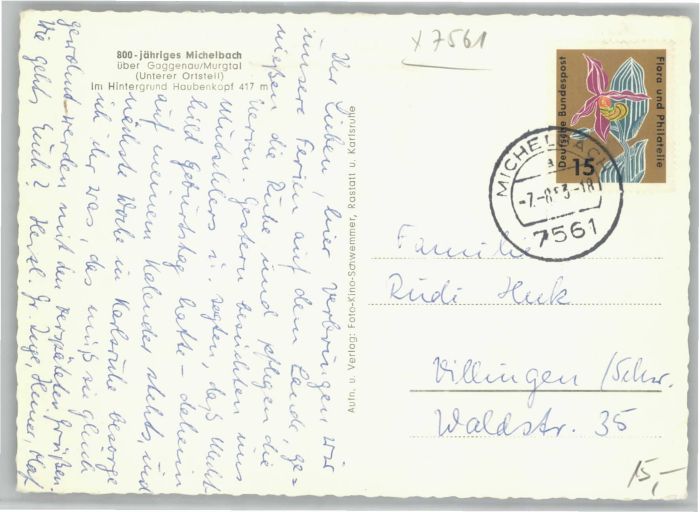 800-jähriges Michelbach
über Gaggenau/Murgtal
(Unterer Ortsteil)
Im Hintergrund Haubenkopf 417 m
Ihr Lieben, hier verbringen wir
unsere Ferien auf dem Lande, ge=
nießen die Ruhe und pflegen die
Nerven. Gestern besuchten uns
u. sagten, daß
hild Geburtstag hatte - daheim
auf meinem Kalender steht's, und
nächste Woche in Karlsruhe besorge
ich ihr was, das muß sie gleich
gewohnt werden mit den verspäteten Grüßen.
Wie geht's Euch? Herzl. Gr. Inge, Heiner,
Aufn. u. Verlag: Foto-Kino-Schwemmer, Rastatt u. Karlsruhe
x 7561
Deutsche Bundespost
Flora und Philatelie
15
MICHELBACH
a
-7.-8.63-18
7561
Familie
Rudi Huk
Villingen /Schw.
Waldstr. 35
15,-